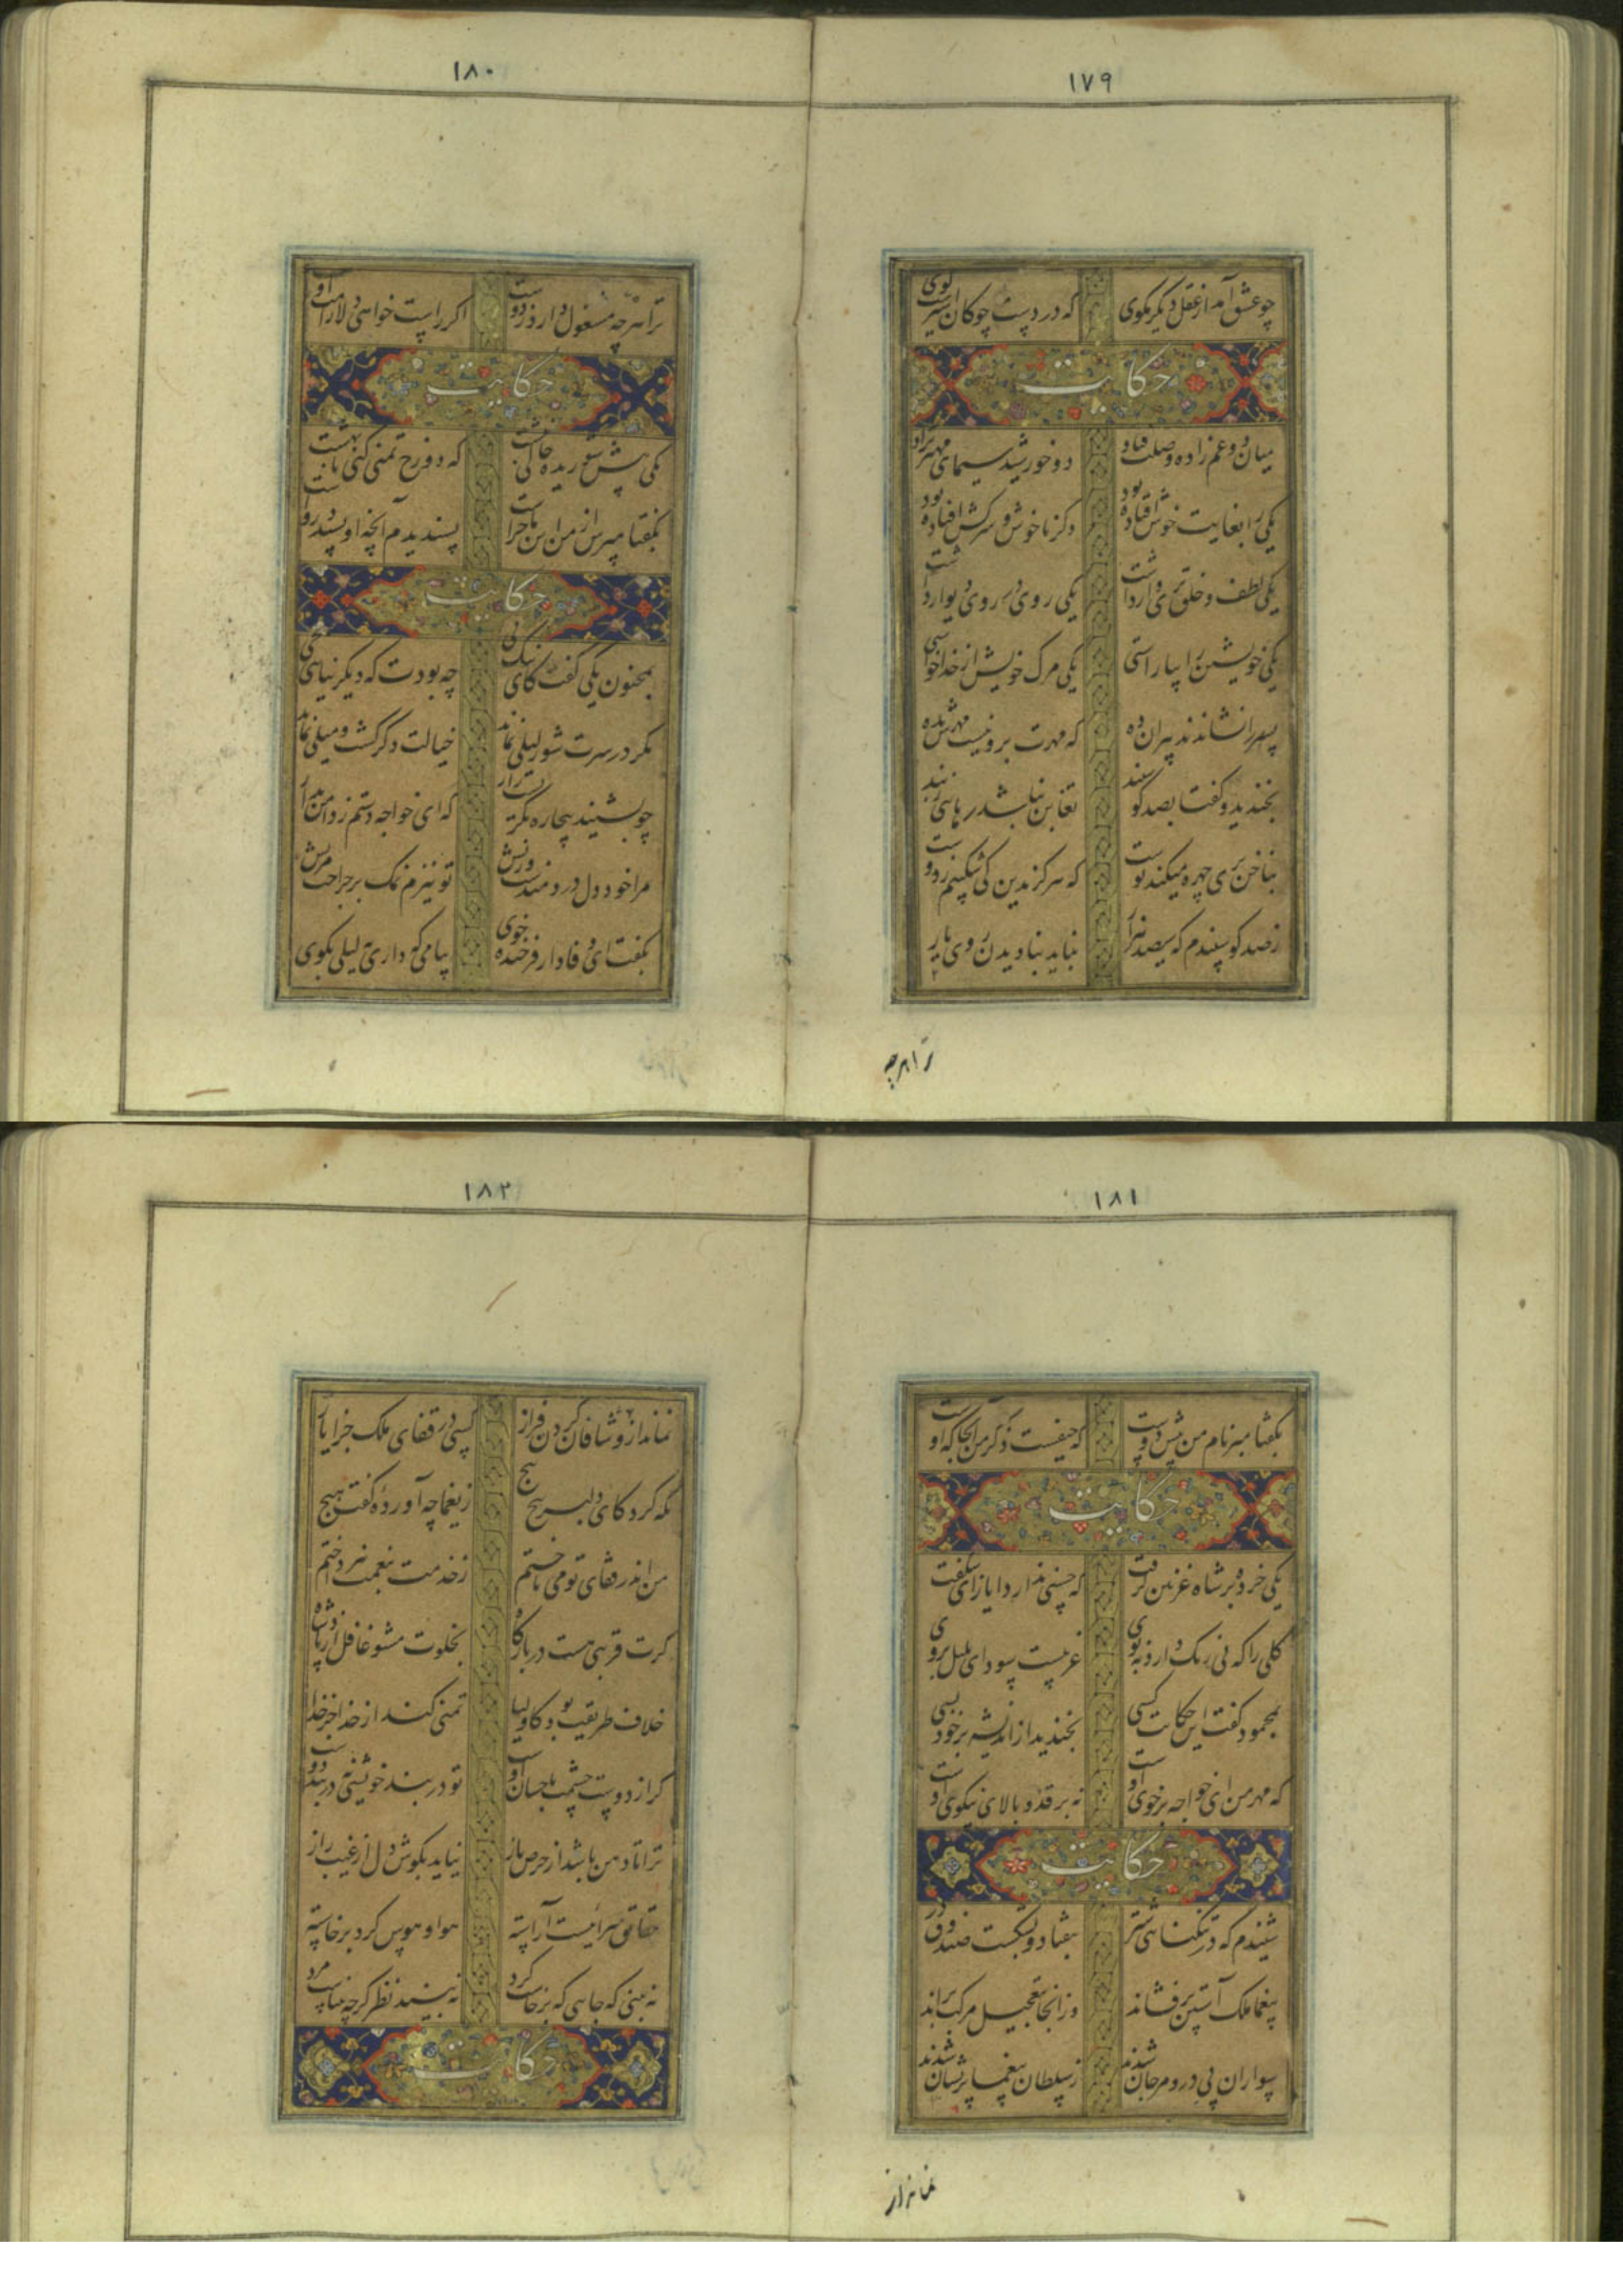 ۱۷۹
چو عشق آمد از عقل دیگر مگوی که در دست چوگان اسیرست گوی
حکایت
میان دو عم زاده وصلت فتاد دو خورشید سیمای مهتر نژاد
یکی را بغایت خوش افتاده بود دگر ناخوش و سرکش افتاده بود
یکی لطف و خلق پری وار داشت یکی روی در روی دیوار داشت
یکی خویشتن را بیاراستی یکی مرک خویش از خدا خواستی
پسر را نشاندند پیران ده که مهرت برو نیست مهرش بده
بخندید و گفتا بصد گوسفند تغابن نباشد رهایی ز بند
بناخن پری چهره میکند پوست که هرگز بدین کی شکیبم ز دوست
نه صد گوسفندم که سیصد هزار نباید بنادیدن روی یار
ترا هرچه
۱۸۰
ترا هرچه مشغول دارد ز دوست اگر راست خواهی دلارامت اوست
حکایت
یکی پیش شوریده حالی نبشت که دوزخ تمنی کنی یا بهشت
بگفتا مپرس از من این ماجرا پسندیدم آنچه او پسندد مرا
حکایت
بمجنون یکی گفت کای نیک پی چه بودت که دیگر نیایی بحی
مگر در سرت شور لیلی نماند خیالت دگر گشت و میلی نماند
چو بشنید بیچاره بگریست زار که ای خواجه دستم ز دامن بدار
مرا خود دلی دردمندست ریش تو نیزم نمک بر جراحت مریش
بگفت ای وفادار فرخنده خوی پیامی که داری بلیلی بگوی
۱۸۱
بگفتا مبر نام من پیش دوست که حیفست ذکر من آنجا که اوست
حکایت
یکی خرده بر شاه غزنین گرفت که حسنی ندارد ایاز ای شگفت
گلی را که نی رنگ دارد نه بوی غریبست سودای بلبل بروی
بمحمود گفت این حکایت کسی بخندید از اندیشه بر خود بسی
که مهر من ای خواجه بر خوی اوست نه بر قد و بالای نیکوی اوست
حکایت
شنیدم که در تنگنایی شتر بیفتاد و بشکست صندوق در
بیغما ملک آستین برفشاند وز آنجا بتعجیل مرکب براند
سواران پی در و مرجان شدند ز سلطان بیغما پریشان شدند
نماند از
۱۸۲
نماند از وشاقان گردن فراز کسی در قفای ملک جز ایاز
نگه کرد کای دلبر پیچ پیچ ز یغما چه آورده گفت هیچ
من اندر قفای تو می تاختم ز خدمت بنعمت نپرداختم
گرت قربتی هست در بارگاه بخلوت مشو غافل از پادشاه
خلاف طریقت بود کاولیا تمنی کنند از خدا جز خدا
گر از دوست چشمت باحسان اوست تو در بند خویشی نه در بند دوست
ترا تا دهن باشد از حرص باز نیاید بگوش دل از غیب راز
حقایق سرائیست آراسته هوا و هوس گرد برخاسته
نه بینی که جایی که برخاست گرد نه بیند نظر گرچه بیناست مرد
حکایت